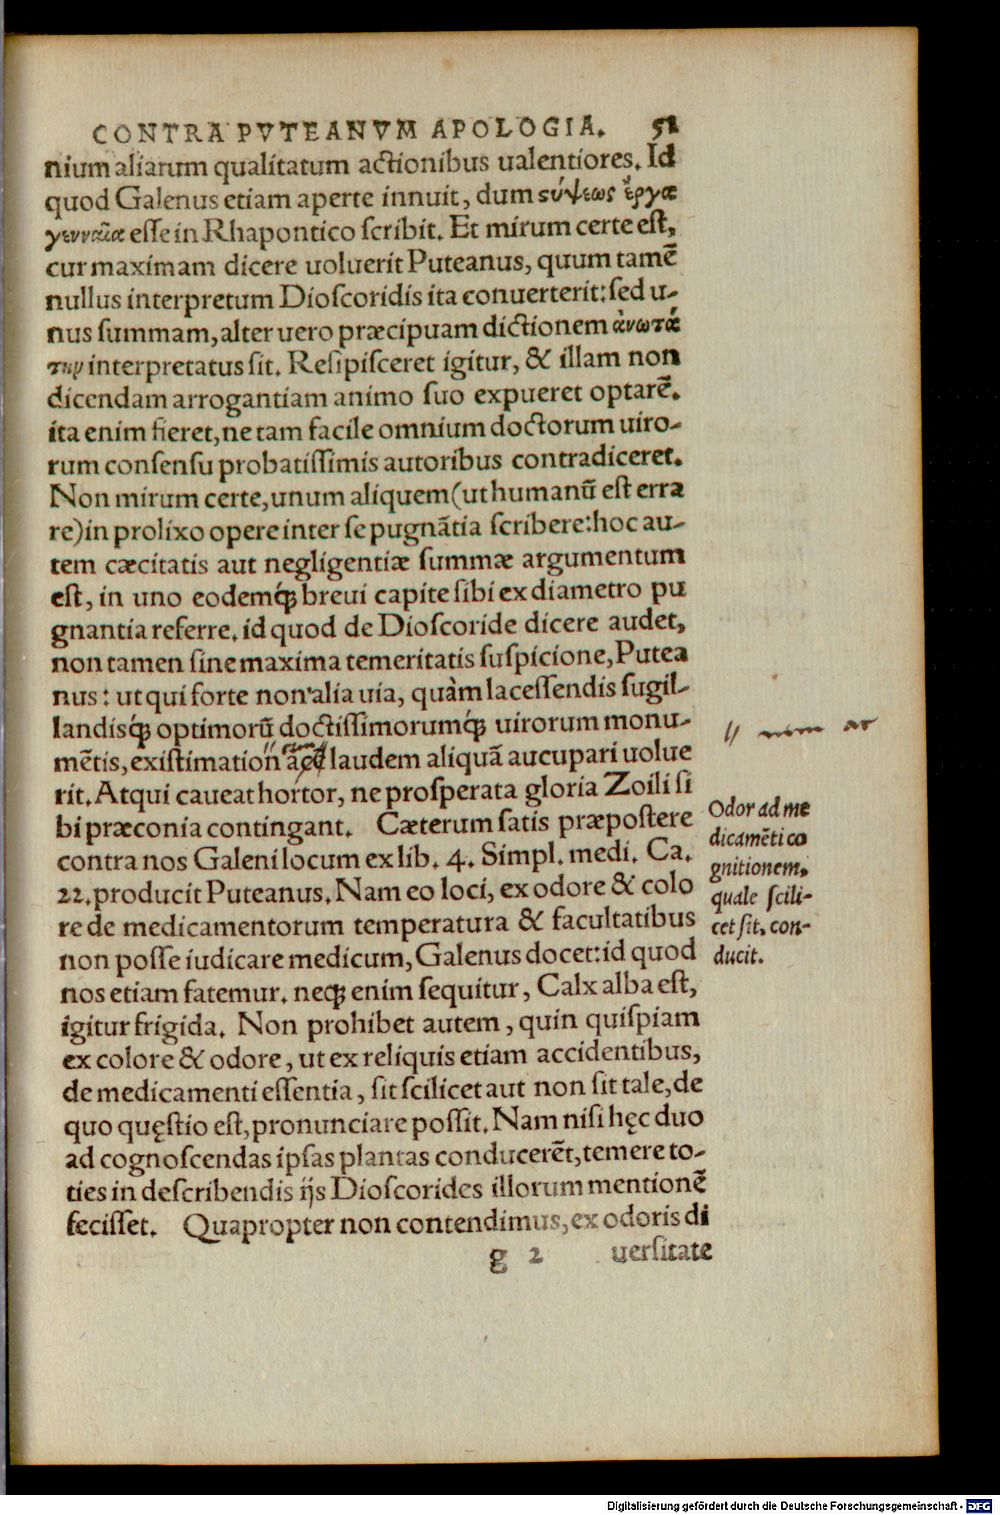 CONTRA PVTEANVM APOLOGIA. 51
nium aliarum qualitatum actionibus ualentiores. Id
quod Galenus etiam aperte innuit, dum ςύψεως ἔργα
γενναῖα esse in Rhapontico scribit. Et mirum certe est,
cur maximam dicere uoluerit Puteanus, quum tamē
nullus interpretum Dioscoridis ita conuerterit: sed u-
nus summam, alter uero præcipuam dictionem ἀνωτά
την interpretatus sit. Resipisceret igitur, & illam non
dicendam arrogantiam animo suo expueret optarē.
ita enim fieret, ne tam facile omnium doctorum uiro-
rum consensu probatissimis autoribus contradiceret.
Non mirum certe, unum aliquem (ut humanū est erra
re) in prolixo opere inter se pugnātia scribere: hoc au-
tem cæcitatis aut negligentiæ summæ argumentum
est, in uno eodemq́; breui capite sibi ex diametro pu
gnantia referre. id quod de Dioscoride dicere audet,
non tamen sine maxima temeritatis suspicione, Putea
nus: ut qui forte non alia uia, quàm lacessendis sugil-
landisq́; optimorū doctissimorumq́; uirorum monu-
mētis, existimation laudem aliquā aucupari uolue
rit. Atqui caueat hortor, ne prosperata gloria Zoili si
bi præconia contingant. Cæterum satis præpostere
contra nos Galeni locum ex lib. 4. Simpl. medi. Ca.
22. producit Puteanus. Nam eo loci, ex odore & colo
re de medicamentorum temperatura & facultatibus
non posse iudicare medicum, Galenus docet: id quod
nos etiam fatemur. neq; enim sequitur, Calx alba est,
igitur frigida. Non prohibet autem, quin quispiam
ex colore & odore, ut ex reliquis etiam accidentibus,
de medicamenti essentia, sit scilicet aut non sit tale, de
quo quęstio est, pronunciare possit. Nam nisi hęc duo
ad cognoscendas ipsas plantas conducerēt, temere to-
ties in describendis ijs Dioscorides illorum mentionē
fecisset. Quapropter non contendimus, ex odoris di
g 2 uersitate
// nem ac
Odor ad me
dicamēti co
gnitionem,
quale scili-
cet sit, con-
ducit.
Digitalisierung gefördert durch die Deutsche Forschungsgemeinschaft - DFG